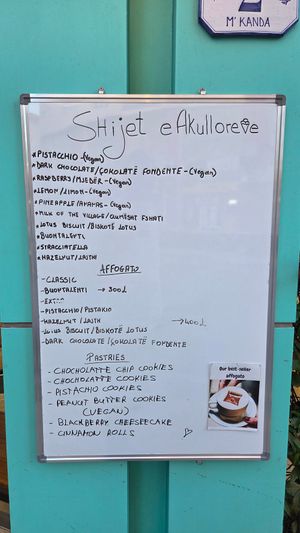 M'KANDA
SHijet e Akulloreve
*PISTACCHIO-(Vegan)
*DARK CHOCOLATE/ÇOKOLATË FONDENTE-(Vegan)
*RASPBERRY/MJEDËR-(Vegan)
*LEMON/LIMON-(Vegan)
*PINEAPPLE/ANANAS-(Vegan)
*MILK OF THE VILLAGE/QUMËSHT FSHATI
*LOTUS BISCUIT/BISKOTË LOTUS
*BUONTALENTI
*STRACCIATELLA
*HAZELNUT/LAJTHI
AFFOGATO
-CLASSIC
-BUONTALENTI → 300L
-PISTACCHIO/PISTAKIO
-HAZELNUT/LAJTH →400L
-LOTUS BISCUIT/BISKOTË LOTUS
-DARK CHOCOLATE/ÇOKOLATË FONDENTE
PASTRIES
- CHOCHOLATTE CHIP COOKIES
- CHOCHOLATTE COOKIES
- PISTACHIO COOKIES
- PEANUT BUTTER COOKIES
(VEGAN)
- BLACKBERRY CHEESECAKE
- CINNAMON ROLLS
Our best-seller
affogato